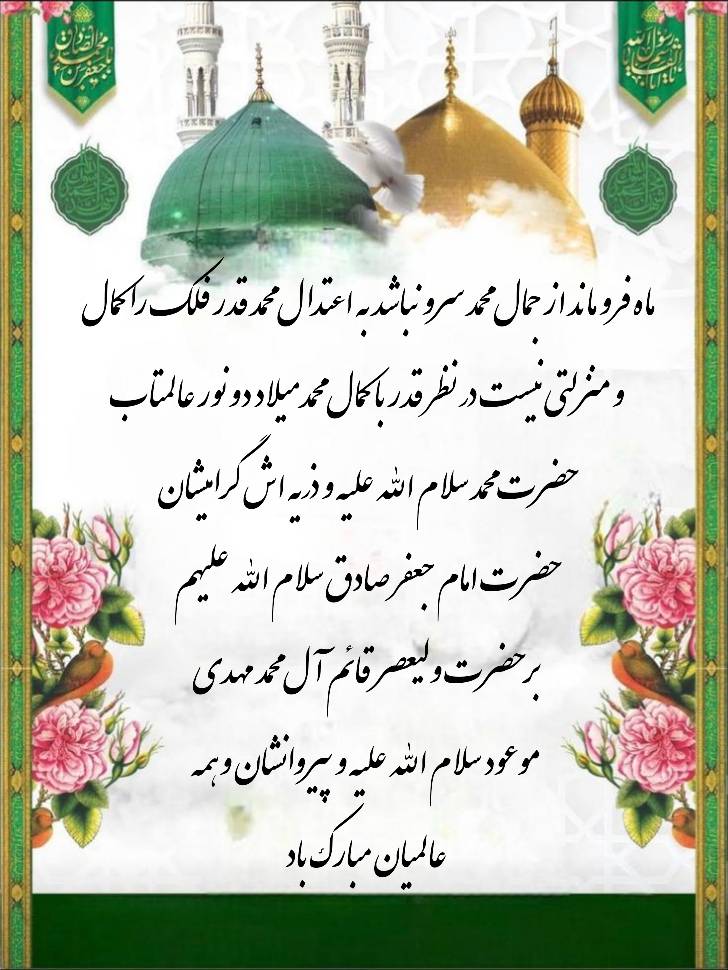 ماه فرو ماند از جمال محمد سرو نباشد به اعتدال محمد قدر فلک را کمال
و منزلتی نیست در نظر قدر با کمال محمد میلاد دو نور عالمتاب
حضرت محمد سلام الله علیه و ذریه اش گرامیشان
حضرت امام جعفر صادق سلام الله علیهم
بر حضرت ولیعصر قائم آل محمد مهدی
موعود سلام الله علیه و پیروانشان و همه
عالمیان مبارک باد